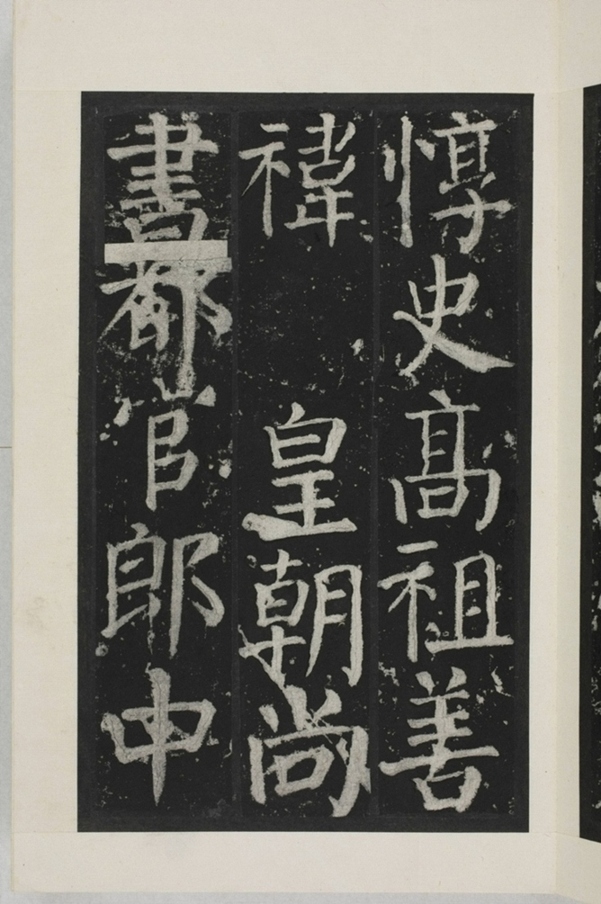 惇史高祖善
禕　皇朝尚
書都官郎中